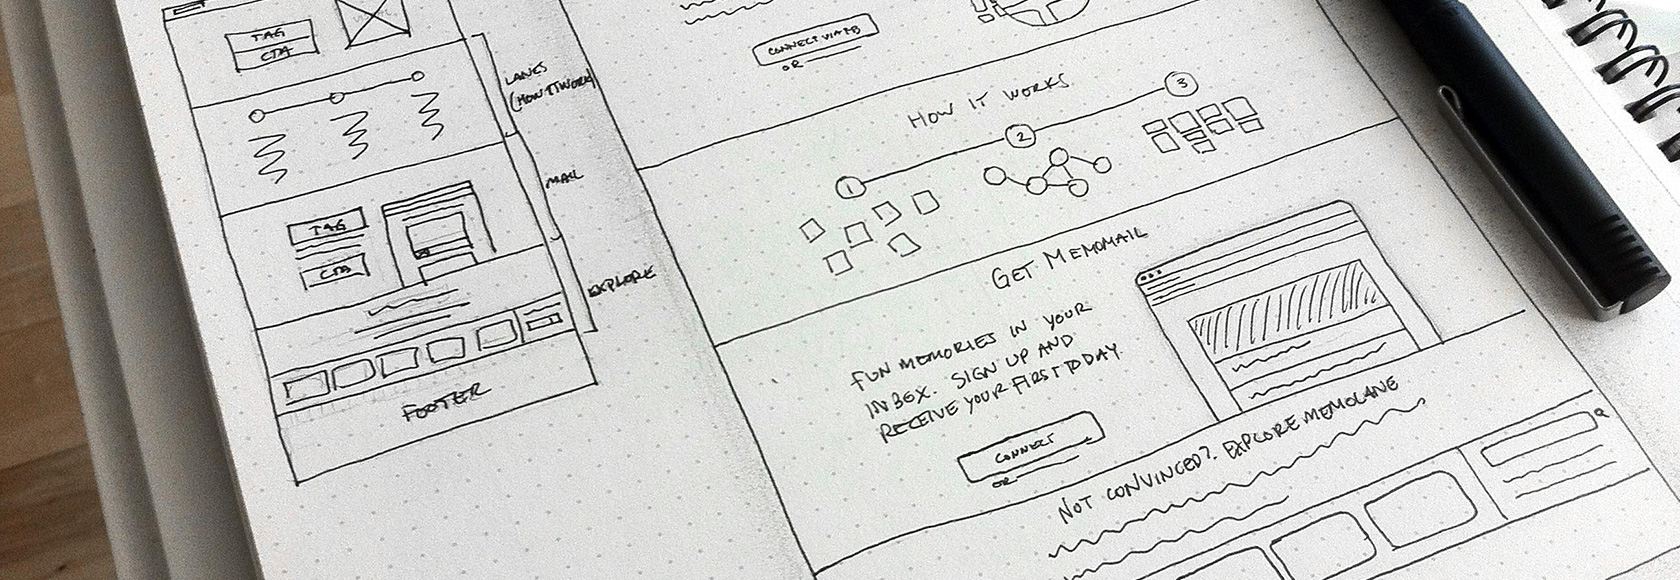 TAG
CTA
LANES
(HOW IT WORKS)
MAIL
TAG
CTA
EXPLORE
FOOTER
CONNECT VIA FB
OR
HOW IT WORKS
1
2
3
GET MEMOMAIL
FUN MEMORIES IN YOUR
INBEX. SIGN UP AND
RECEIVE YOUR FIRST TODAY.
CONNECT
OR
NOT CONVINCED? EXPLORE MEMOLANE